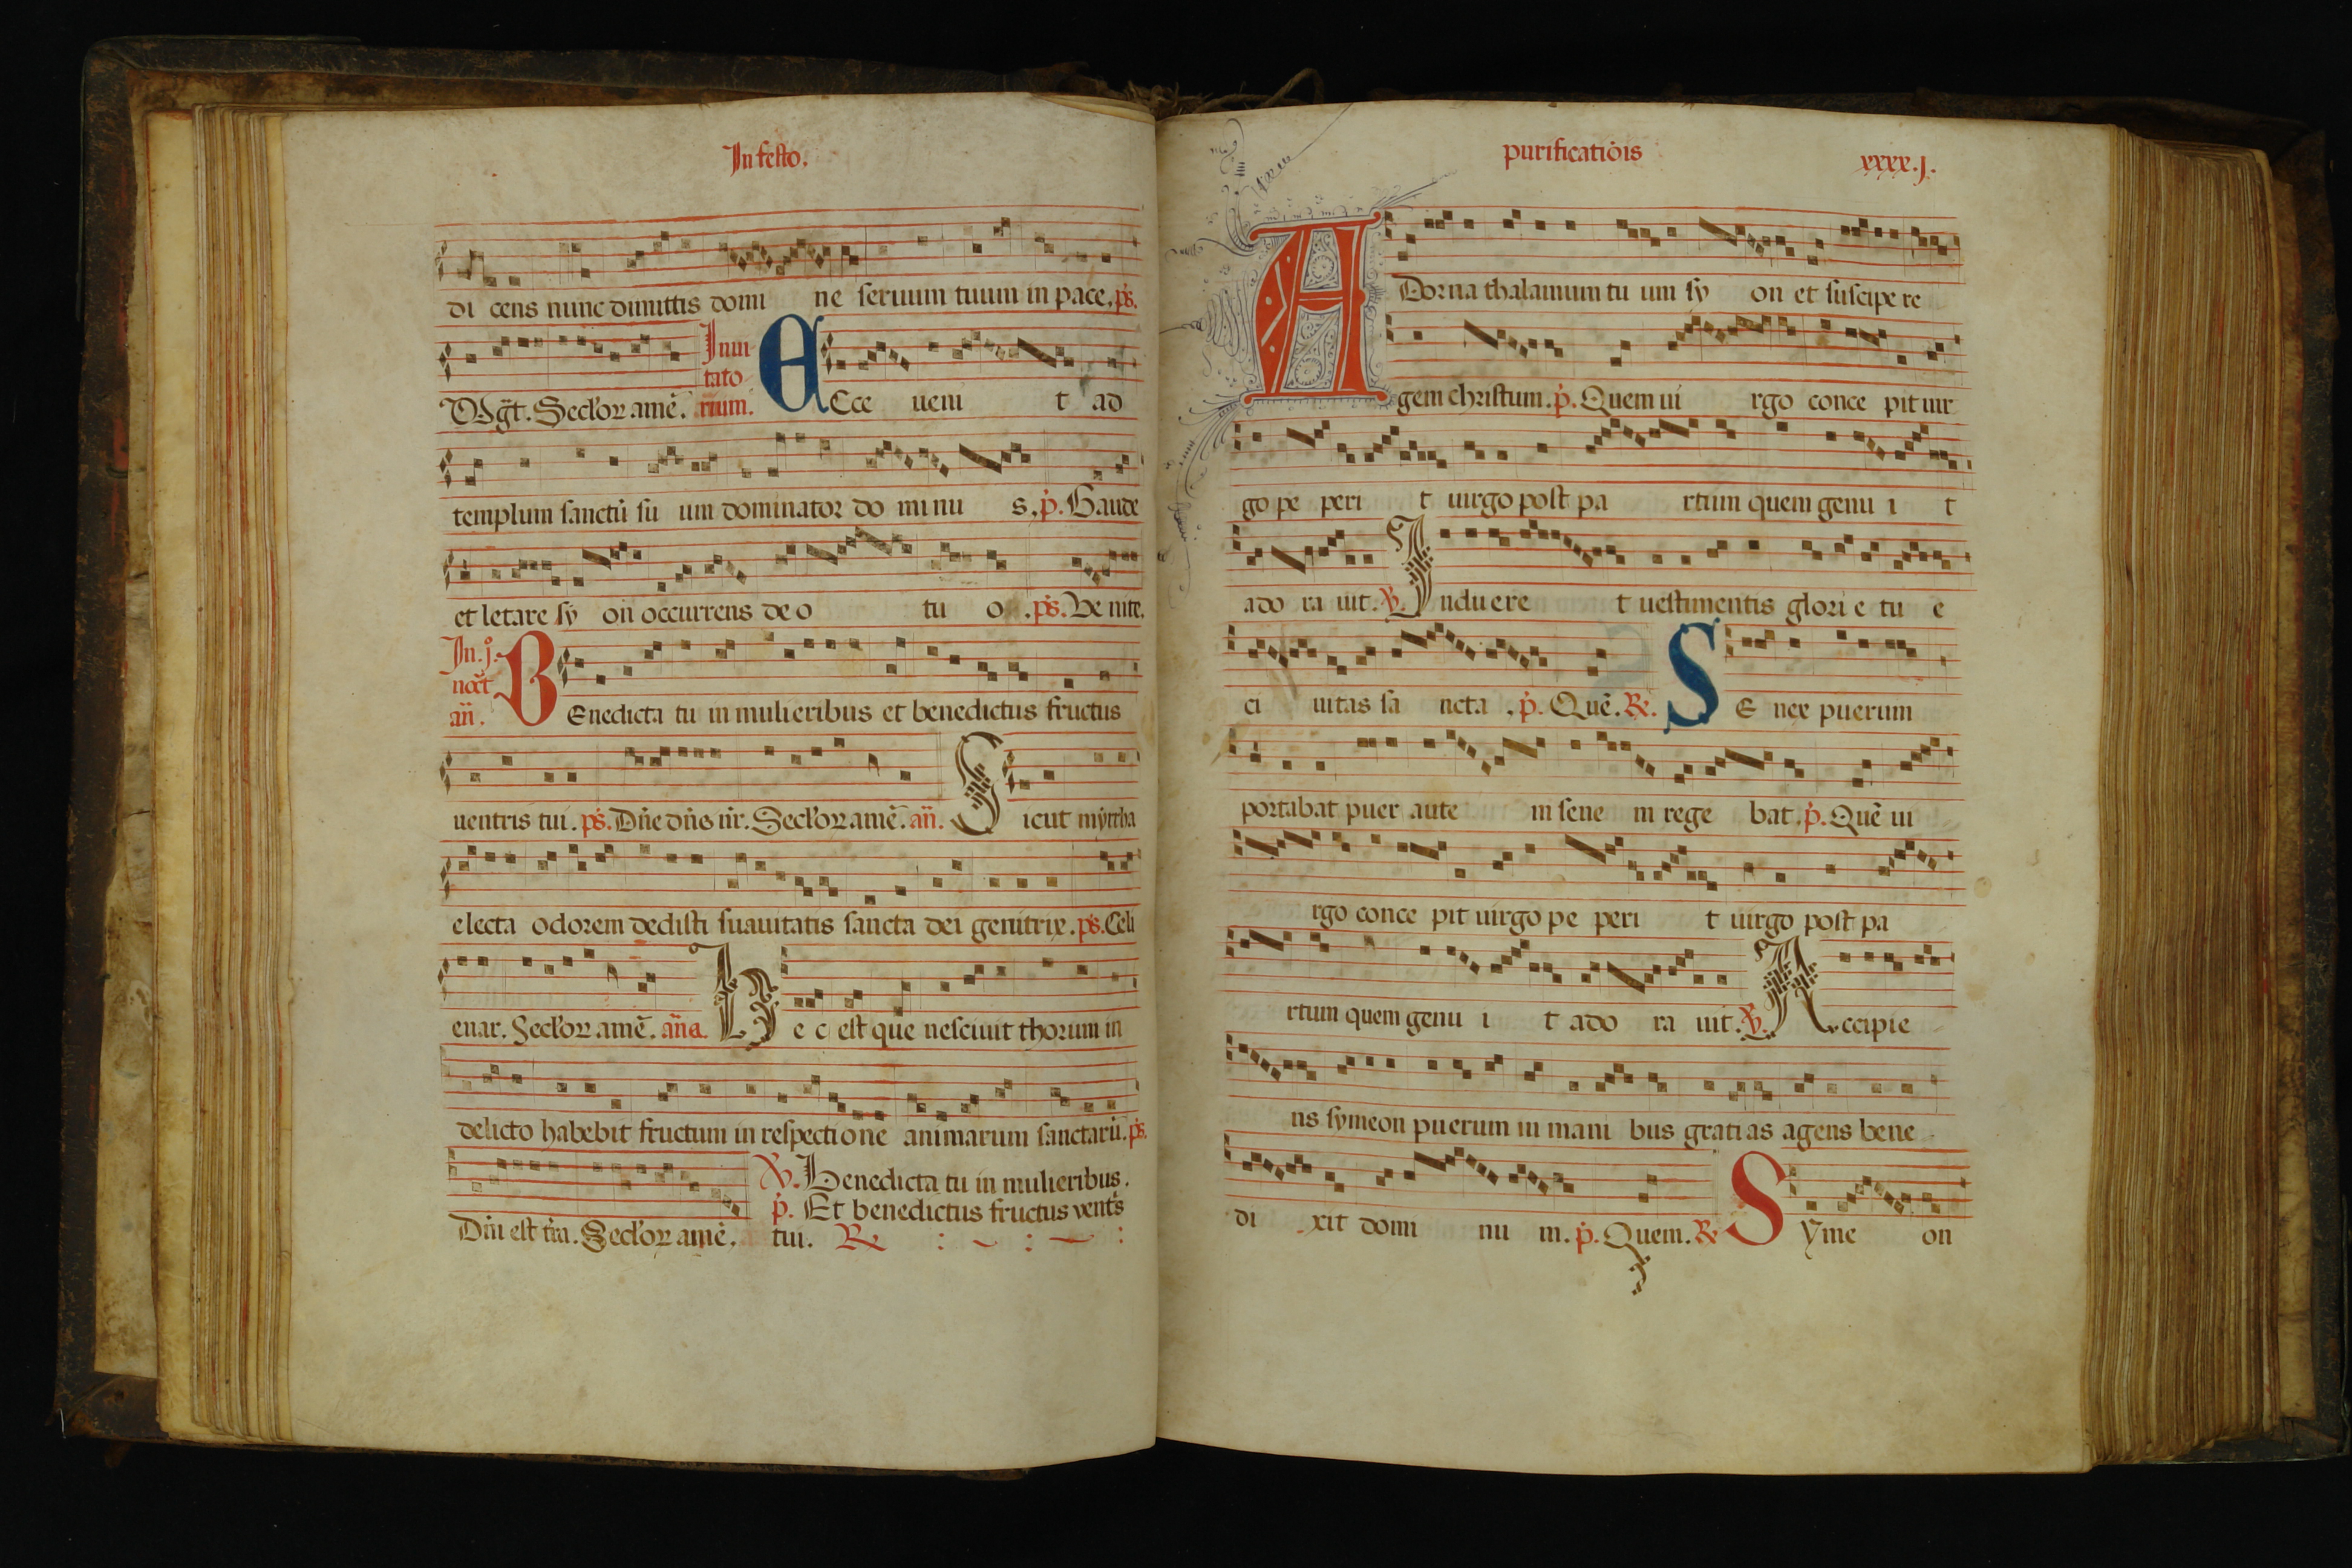 In festo.
di cens nunc dimittis domi ne seruum tuum in pace. ps.
Magt. Seclor amē. Inui
tato
rium. Ecce ueni t ad
templum sanctū su um dominator do mi nu s. p. Gaude
et letare sy on occurrens de o tu o . ps. Ve nite.
In. j.
noct
añ. Benedicta tu in mulieribus et benedictus fructus
uentris tui. ps. Dñe dñs nr. Seclor amē. añ. Sicut myrrha
electa odorem dedisti suauitatis sancta dei genitrix. ps. Celi
enar. Seclor amē. aña. he c est que nesciuit thorum in
delicto habebit fructum in respectione animarum sanctarū. ps.
Dñi est tra. Seclor amē. ℣. Benedicta tu in mulieribus.
p. Et benedictus fructus vents
tui. ℟
purificatiōis xxxx.j.
Adorna thalamum tu um sy on et suscipe re
gem christum. p. Quem ui rgo conce pit uir
go pe peri t uirgo post pa rtum quem genu i t
ado ra uit. ℣. Induere t uestimentis glori e tu e
ci uitas sa ncta . p. Quē. ℟. Se nex puerum
portabat puer aute m sene m rege bat. p. Quē ui
rgo conce pit uirgo pe peri t uirgo post pa
rtum quem genu i t ado ra uit. ℣. Accipie
ns symeon puerum in mani bus grati as agens bene
di xit domi nu m. p. Quem. ℟ Syme on